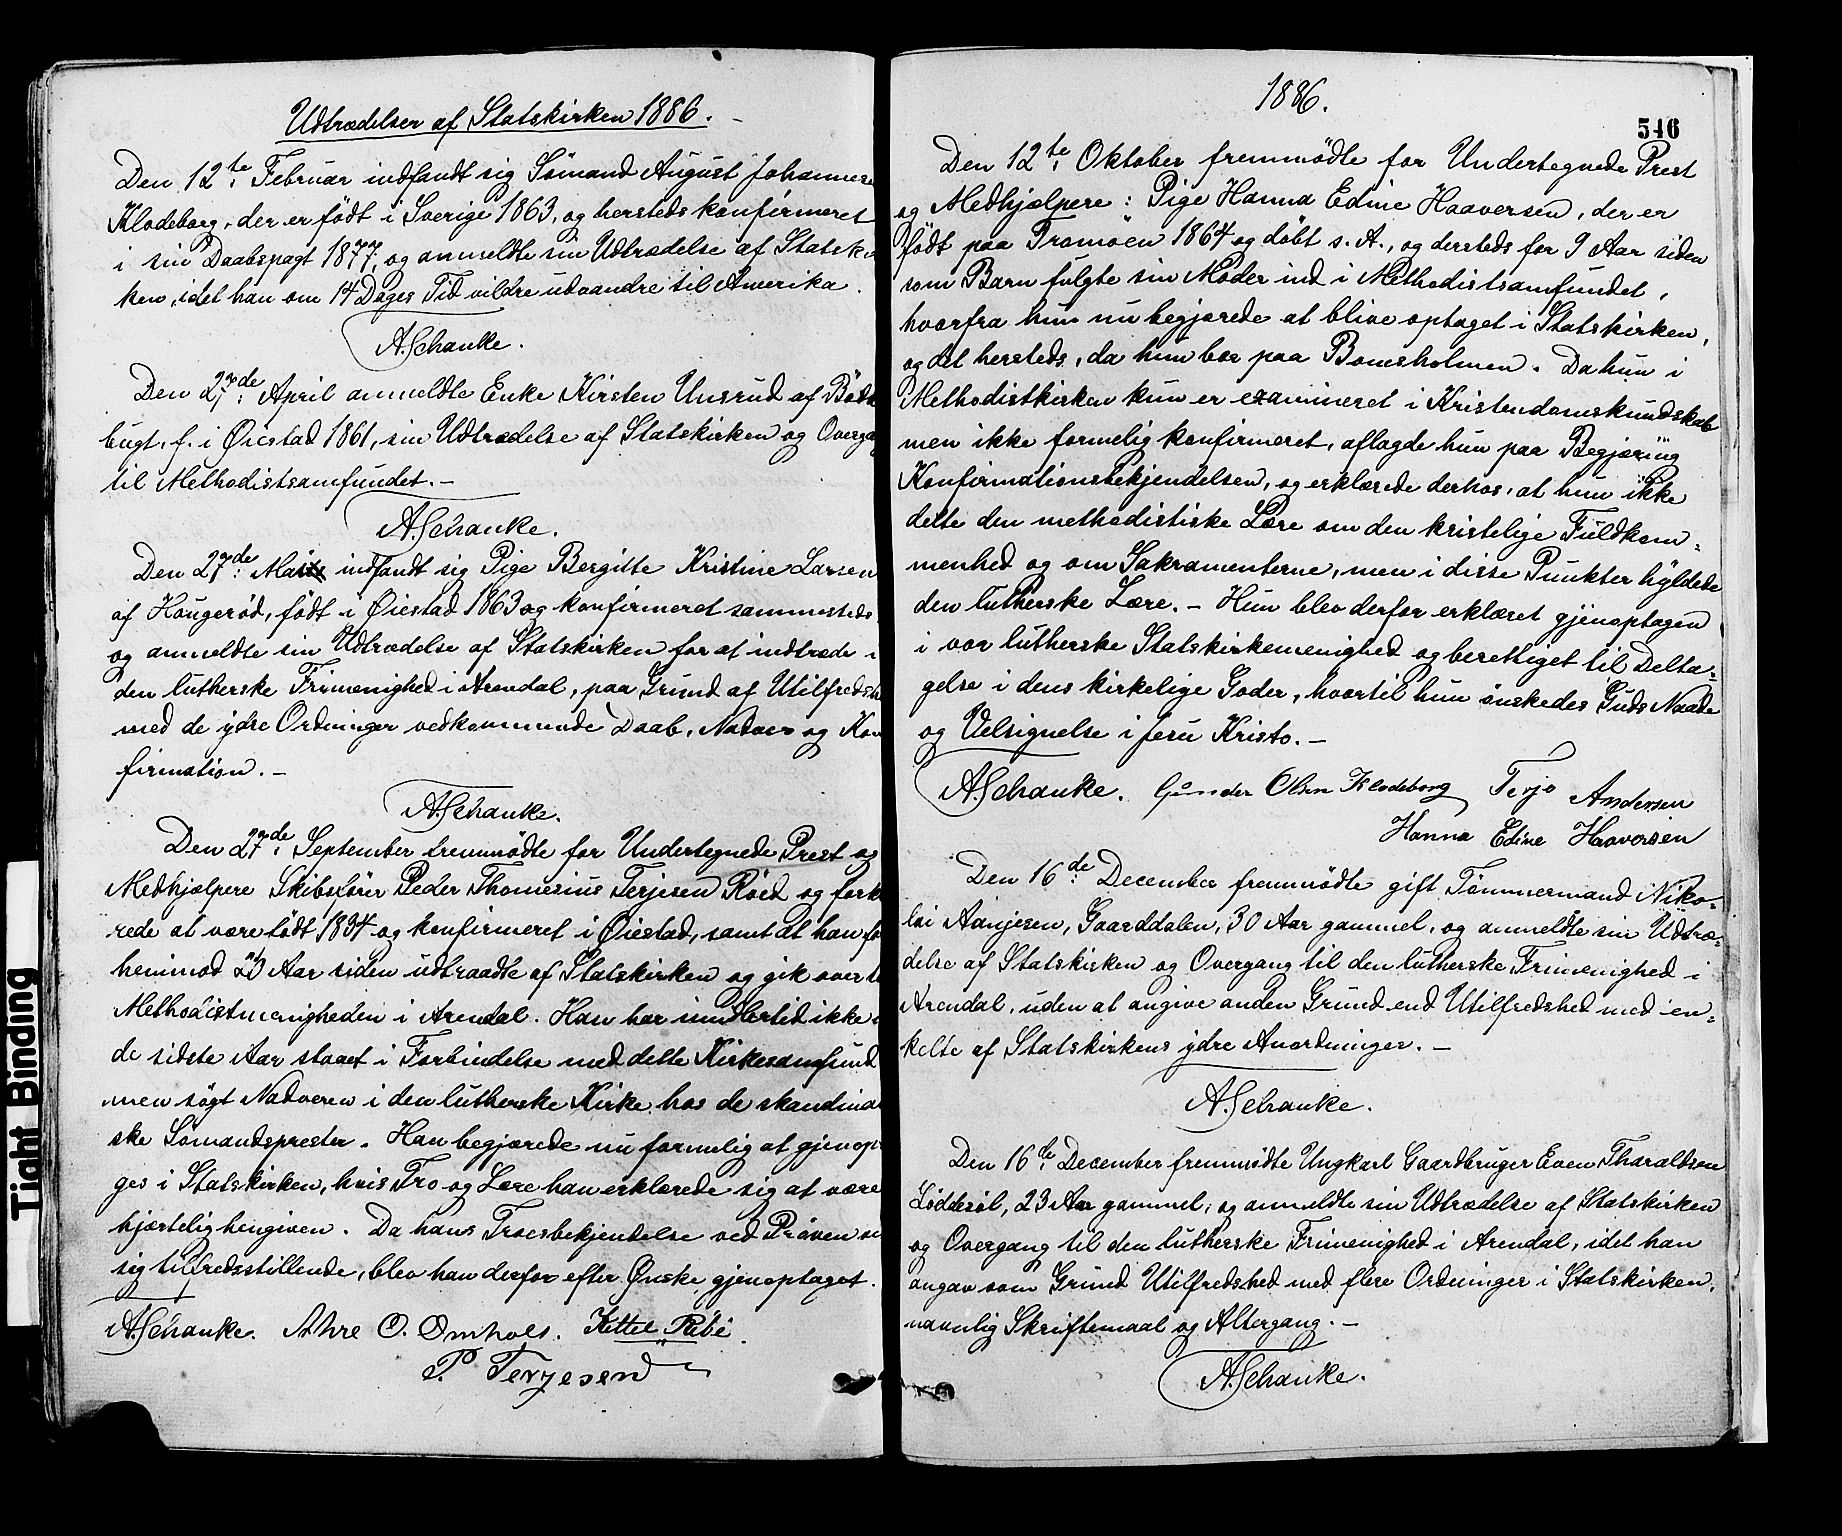 Udtrædelser af Statskirken 1886.
Den 12te Februar indfandt sig Sömand August Johannes
Klodeborg, der er født i Sverige 1863, og hersteds konfirmeret
i sin Daabspagt 1877, og anmeldte sin Udtrædelse af Statskir
ken, idet han om 14 Dages Tid vildre udvandre til Amerika.
A. Schanke.
Den 27de April anmeldte Enke Kirsten Unsrud af
bugt, f. i Øiestad 1861, sin Udtrædelse af Statskirken og Overga
til Methodistsamfundet.—
A. Schanke.
Den 27de indfandt sig Pige Bergitte Kristine Larsen
af Haugerød, født i Øiestad 1863 og konfirmeret sammesteds
og anmeldte sin Udtrædelse af Statskirken for at indtræde i
den lutherske Frimenighed i Arendal, paa Grund af Utilfredsh
med de ydre Ordninger vedkommende Daab, Nadver og Kon
firmation.—
A. Schanke.
Den 27de September fremmödte for Undertegnede Prest og
Medhjælpere Skibsfører Peder Thomesius Terjesen Röed og forkl
rede at være født 1834 og konfirmeret i Øiestad, samt at han for
henimod 20 Aar siden udtraadte af Statskirken og gik over t
Methodistmenigheden i Arendal. Han har imidlertid ikke i
de sidste Aar staaet i Forbindelse med dette Kirkesamfund
men søgt Nadveren i den lutherske Kirke hos de skandinav
ske Sömandsprester. Han begjærede nu formelig at gjenop
ges i Statskirken, hvis Tro og Lære han erklærede sig at være
hjærtelig hengiven. Da hans Troesbekjendelse ved Prøven vi
sig tilfredsstillende, blev han derfor efter Ønske gjenoptaget.
A. Schanke. O. Omholt. Kittel Ribe
P. Terjesen
1886.
546
Den 12te Oktober fremmödte for Undertegnede Prest
og Medhjælpere: Pige Hanna Edine Haaversen, der er
født paa Tromöen 1864 og döbt s. A., og dersteds for 9 Aar siden
som Barn fulgte sin Moder ind i Methodistsamfundet,
hvorfra hun nu begjærede at blive optaget i Statskirken,
og det hersteds, da hun bor paa Bomsholmen. Da hun i
Methodistkirken kun er examineret i Kristendomskundskab
men ikke formelig konfirmeret, aflagde hun paa Begjæring
Konfirmationsbekjendelsen, og erklærede derhos, at hun ikke
delte den methodistiske Lære om den kristelige Fuldkom=
menhed og om Sakramenterne, men i disse Punkter hyldede
den lutherske Lære.— Hun blev derfor erklæret gjenoptagen
i vor lutherske Statskirkemenighed og berettiget til Delta=
gelse i dens kirkelige Goder, hvortil hun önskedes Guds Naade
og Velsignelse i Jesu Kristo.—
A. Schanke. Gunder Olsen Klodeborg Terje Andersen
Hanna Edine Haaversen
Den 16de December fremmödte gift Tömmermand Niko=
lai Aanjesen, Gaarddalen, 30 Aar gammel, og anmeldte sin Udtræ=
delse af Statskirken og Overgang til den lutherske Frimenighed i
Arendal, uden at angive anden Grund end Utilfredshed med en=
kelte af Statskirkens ydre Anordninger.—
A. Schanke.
Den 16de December fremmödte Ungkarl Gaardbruger Even Tharaldsen
Löddesöl, 23 Aar gammel, og anmeldte sin Udtrædelse af Statskirken
og Overgang til den lutherske Frimenighed i Arendal, idet han
angav som Grund Utilfredshed med flere Ordninger i Statskirken,
navnlig Skriftemaal og Altergang.—
A. Schanke.
Tight Binding